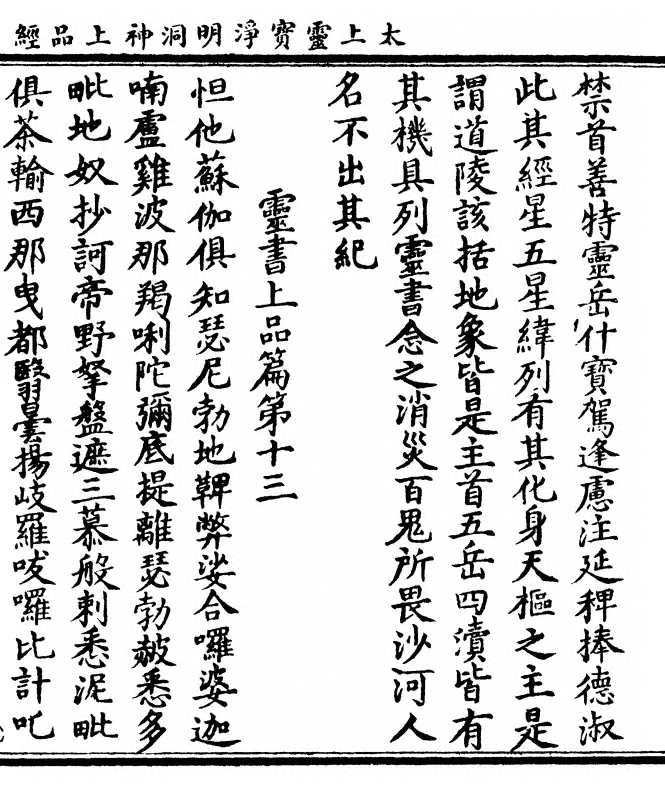 太上靈寶淨明洞神上品經
禁首善特靈岳什寶駕逢慮注延稗捧德淑
此其經星五星緯列有其化身天樞之主是
謂道陵該括地象皆是主首五岳四瀆皆有
其機具列靈書念之消災百鬼所畏沙河人
名不出其紀
靈書上品篇第十三
怛他蘇伽俱知瑟尼勃地鞞弊娑合囉婆迦
喃盧雞波那羯唎陀彌底提離瑟勃皴悉多
毗地奴抄訶帝野拏盤遮三慕般剌悉泥毗
俱茶輸西那曳都翳曇揚岐羅吠囉比計吒